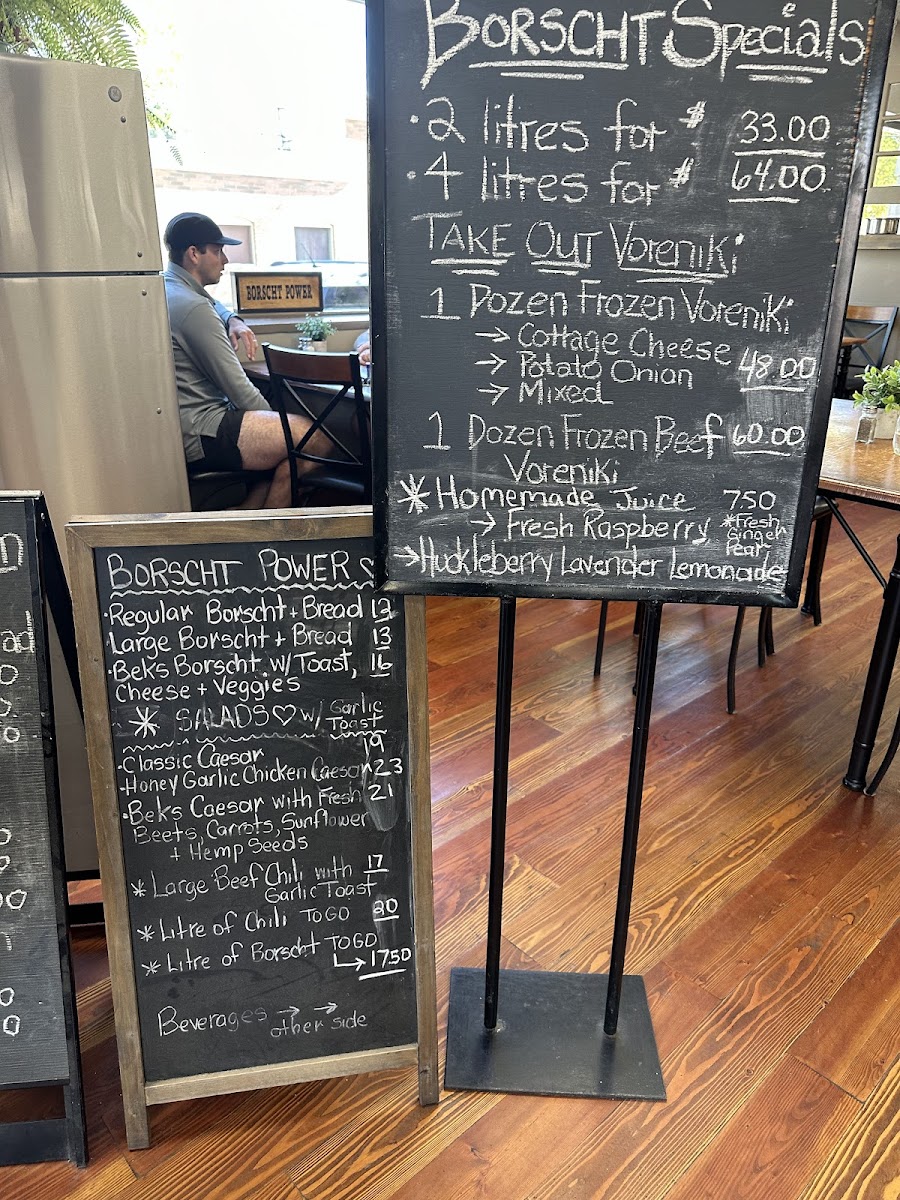 BORSCHT Specials
·2 litres for $ 33.00
·4 litres for $ 64.00
TAKE OUT VoreniKi
1 Dozen Frozen VoreniKi
→ Cottage Cheese
→ Potato Onion 48.00
→ Mixed
1 Dozen Frozen Beef 60.00
VoreniKi
* Homemade Juice 7.50
→ Fresh Raspberry
*Fresh
Ginger
Pear
→Huckleberry Lavender Lemonade
BORSCHT POWER
BORSCHT POWER ♡
·Regular Borscht + Bread 12
·Large Borscht + Bread 13
·Bek's Borscht w/ Toast, 16
Cheese + Veggies
* SALADS ♡ w/ Garlic
Toast
·Classic Caesar 19
·Honey Garlic Chicken Caesar 23
·Bek's Caesar with Fresh 21
Beets, Carrots, Sunflower
+ Hemp Seeds
* Large Beef Chili with 17
Garlic Toast
* Litre of Chili TO GO 20
* Litre of Borscht TO GO
↳ 17.50
Beverages → →
other side